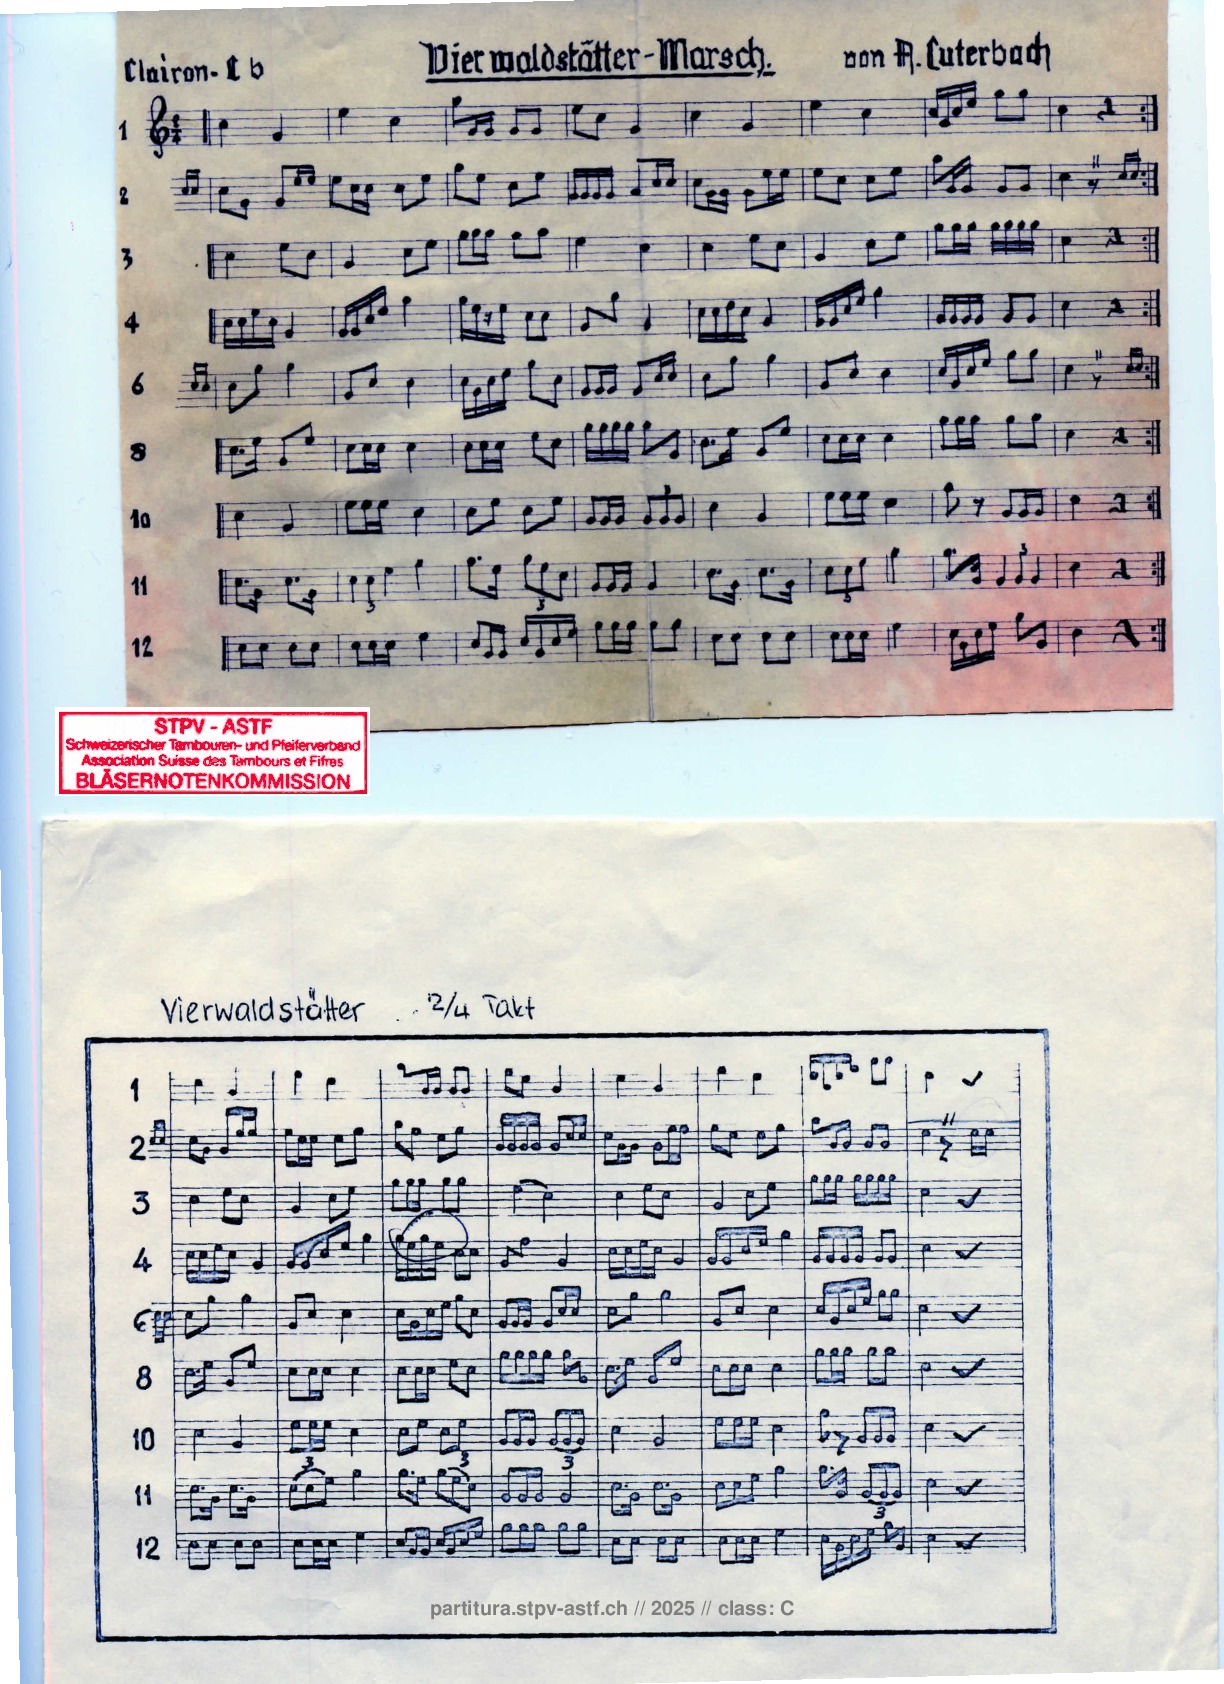 Clairon- C b Vierwaldstätter-Marsch. von A. Luterbach
1
2
3
4
6
8
10
3
11
3
3
3
3
12
STPV - ASTF
Schweizerischer Tambouren- und Pfeiferverband
Association Suisse des Tambours et Fifres
BLÄSERNOTENKOMMISSION
Vierwaldstätter 2/4 Takt
1
2
3
4
6
8
10
3
3
3
11
3
12
partitura.stpv-astf.ch // 2025 // class: C